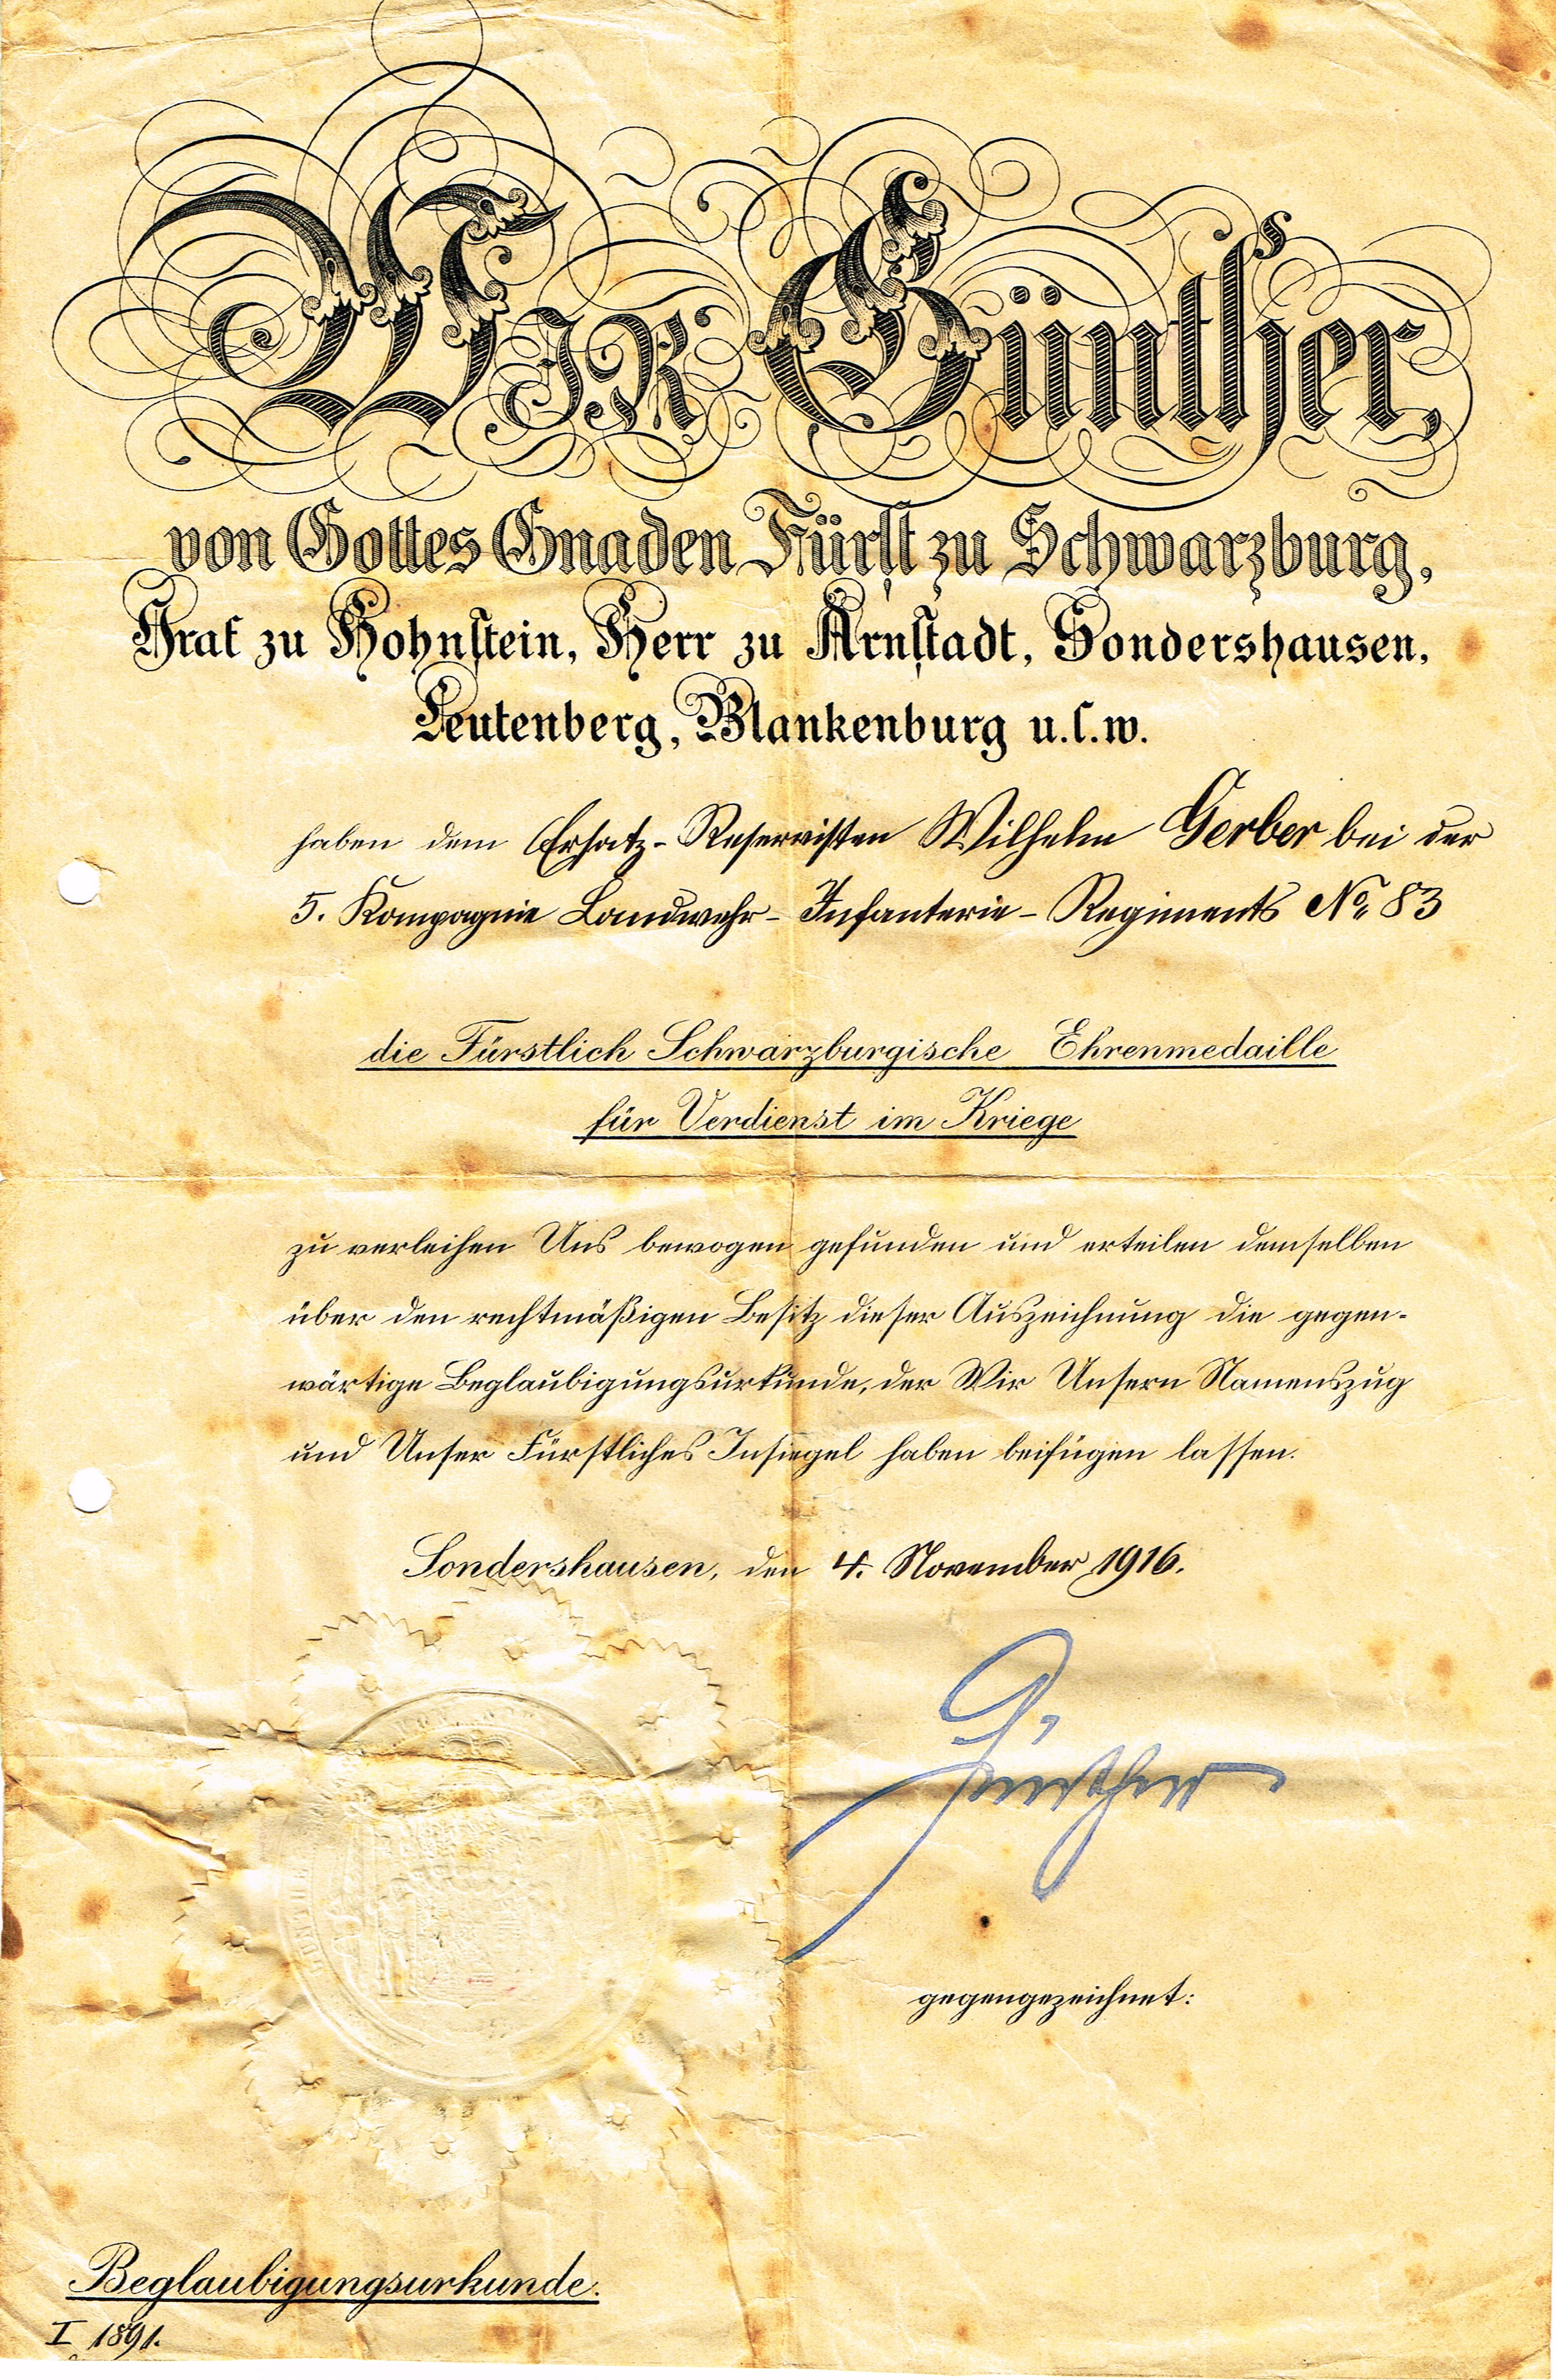 Wir Günther,
von Gottes Gnaden Fürst zu Schwarzburg,
Graf zu Hohnstein, Herr zu Arnstadt, Sondershausen,
Leutenberg, Blankenburg u.s.w.
haben dem Ersatz-Reservisten Wilhelm Gerber bei der
5. Kompagnie Landwehr-Infanterie-Regiments No. 83
die Fürstlich Schwarzburgische Ehrenmedaille
für Verdienst im Kriege
zu verleihen Uns bewogen gefunden und erteilen demselben
über den rechtmäßigen Besitz dieser Auszeichnung die gegen-
wärtige Beglaubigungsurkunde, der Wir Unsern Namenszug
und Unser Fürstliches Insiegel haben beifügen lassen.
Sondershausen, den 4. November 1916.
Günther
gegengezeichnet:
Beglaubigungsurkunde.
I 1891.